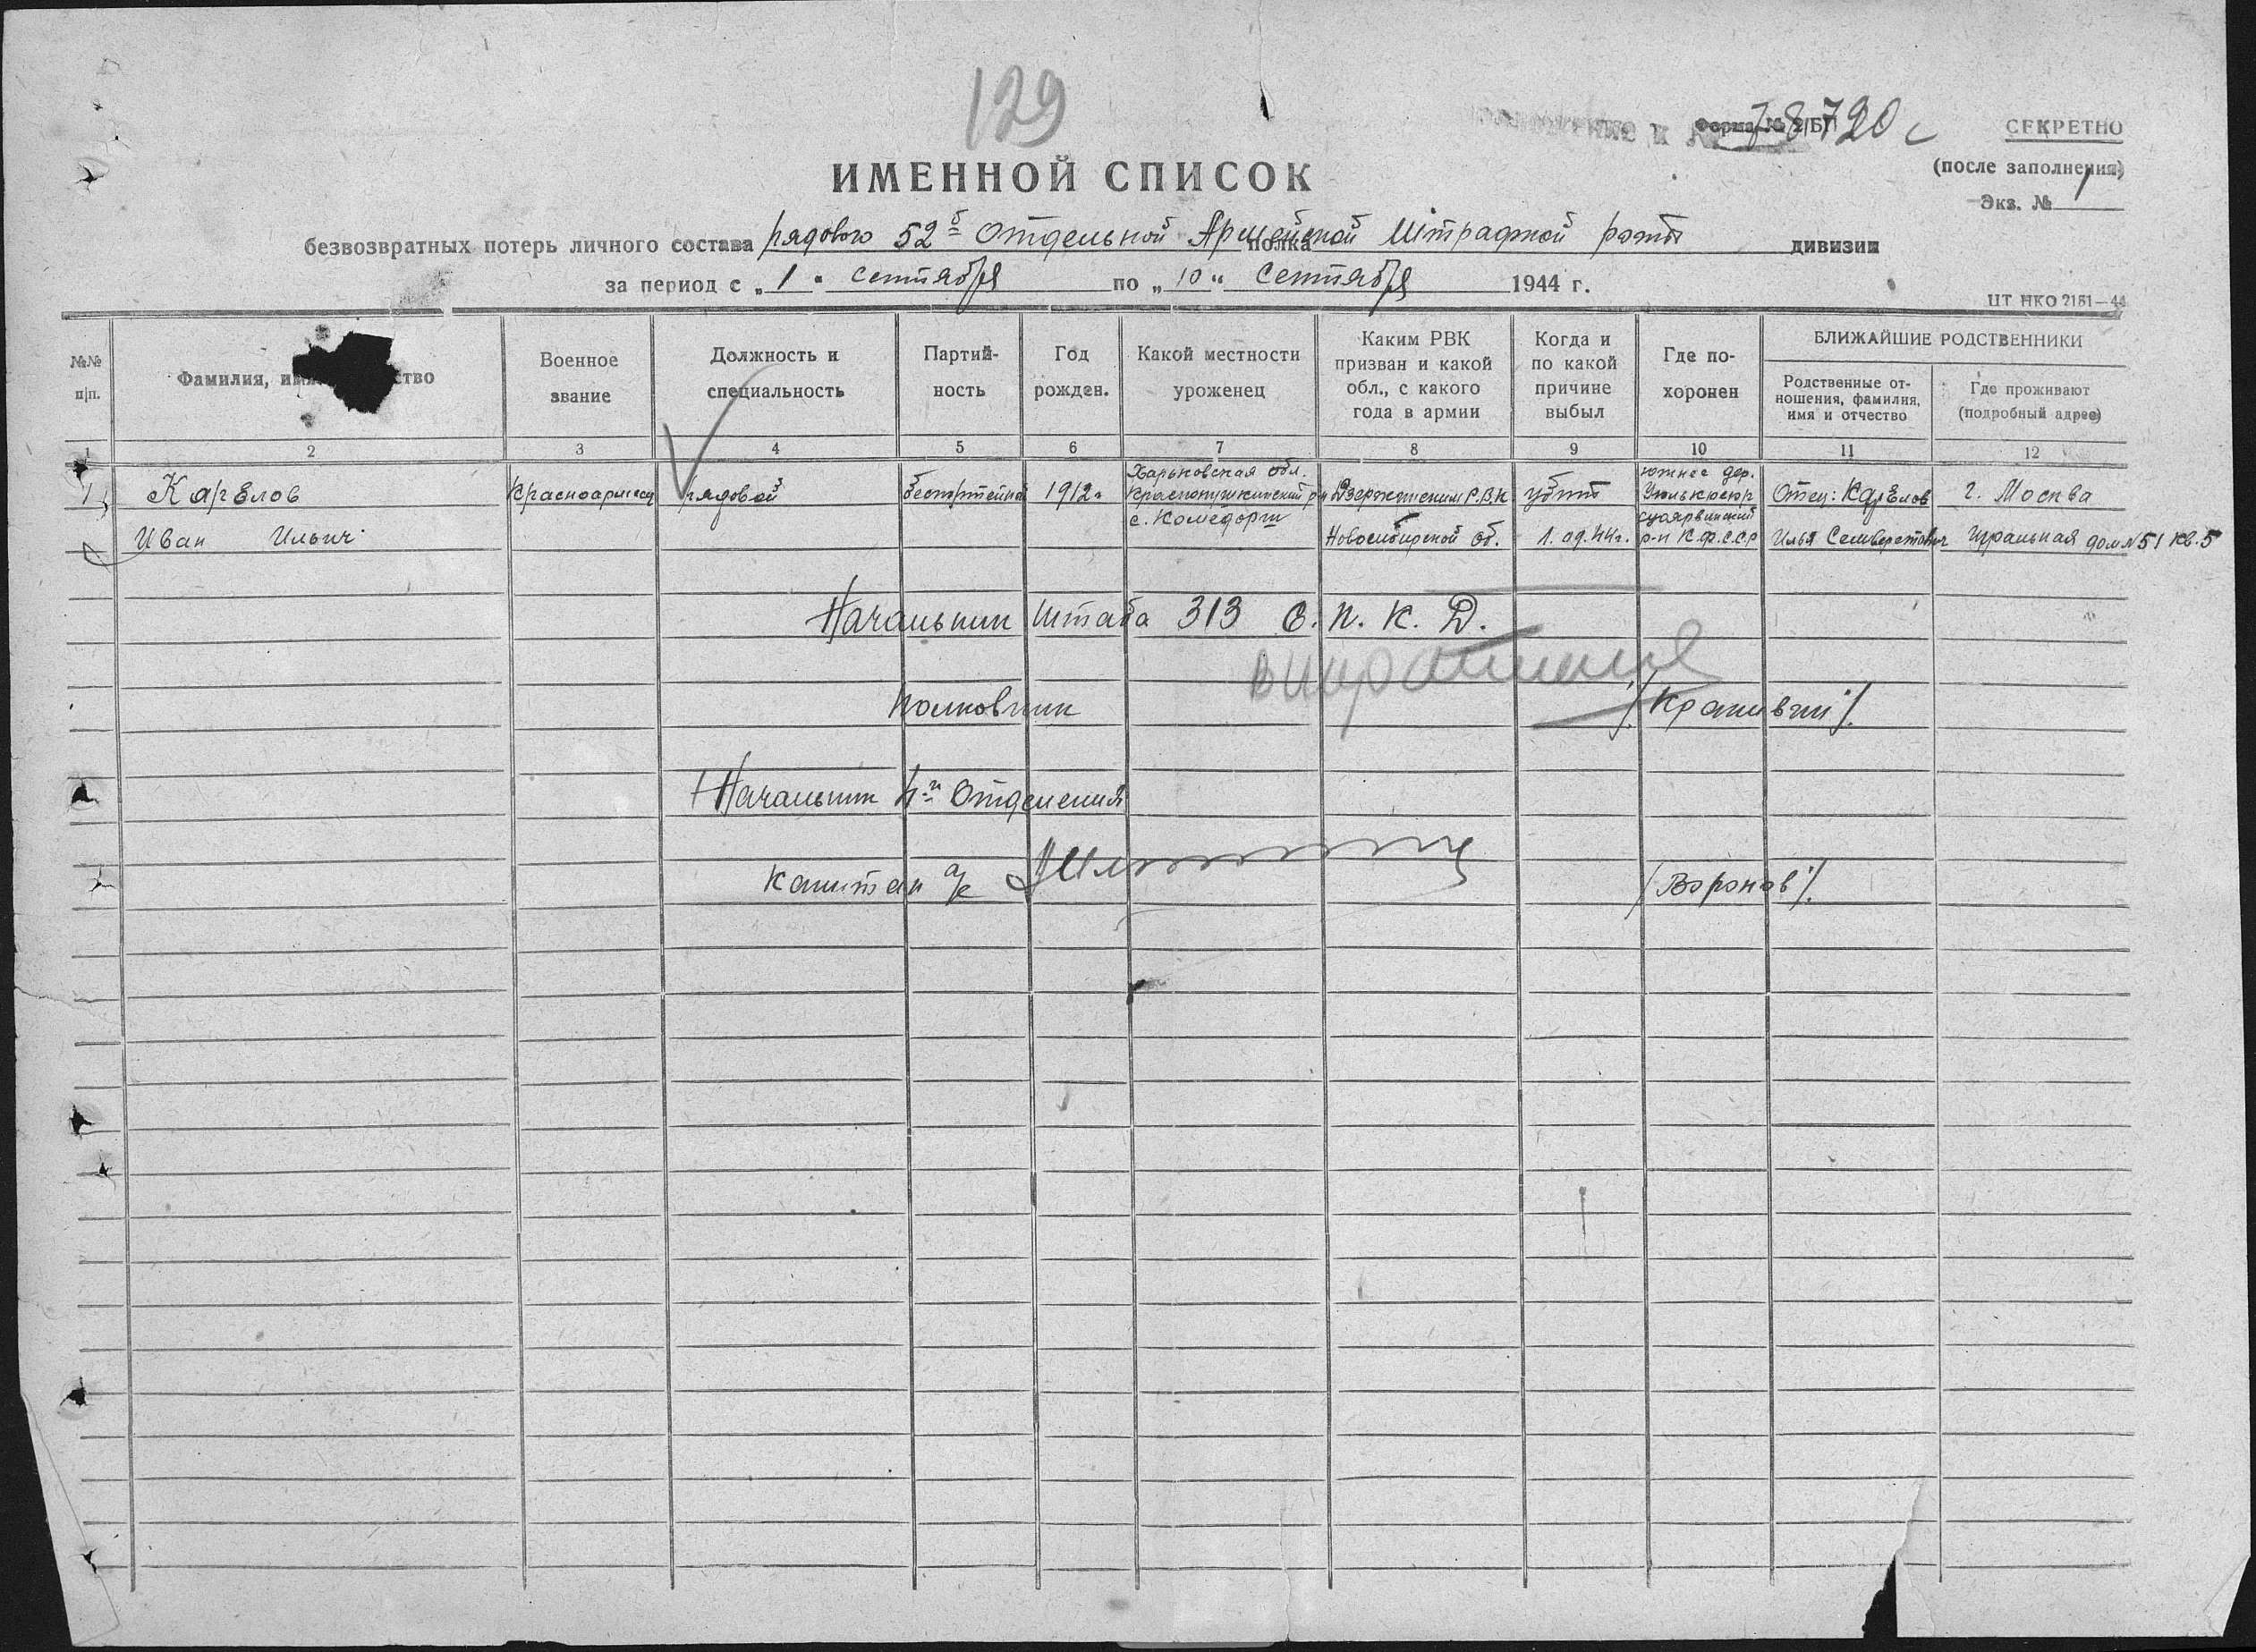 129
Форма № 2/БП 78720с СЕКРЕТНО
(после заполнения)
ИМЕННОЙ СПИСОК
Экз. № 1
безвозвратных потерь личного состава рядового 52й Отдельной Армейской полка Штрафной роты дивизии
за период с „ 1 " сентября по „ 10 " Сентября 1944 г.
ЦТ НКО 2151—44
№№ п|п. Фамилия, им ство Военное звание Должность и специальность Партий-ность Год рожден. Какой местности уроженец Каким РВК призван и какой обл., с какого года в армии Когда и по какой причине выбыл Где по-хоронен БЛИЖАЙШИЕ РОДСТВЕННИКИ
Родственные от-ношения, фамилия, имя и отчество Где проживают (подробный адрес)
1 2 3 4 5 6 7 8 9 10 11 12
Харьковская обл. южнее дер.
1 Карелов Красноармеец рядовой беспартейный 1912г Дзержинским Р.В.К убит Отец: Карелов г. Москва
с. Суоярвинский
Иван Ильич Новосибирской об. 1.09.44г. р-н К.Ф.С.С.Р Илья дом №51 кв.5
Начальник Штаба 313 С. П. К. Д.
Полковник
Начальник 4-й Отделения
Капитан а/с /Воронов/.